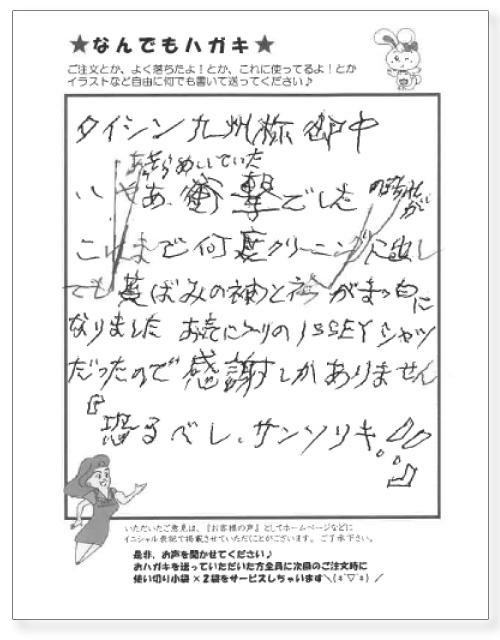 ★なんでもハガキ★
ご注文とか、よく落ちたよ！とか、これに使ってるよ！とか
イラストなど自由に何でも書いて送ってください♪
タイシン九州㈱御中
あきらめいしていた
いやあ、衝撃でした
これまで何度クリーニングに出し
ても黄ばみの袖と衿がまっ白に
なりました お気に入りのISSEYシャツ
だったので感謝しかありません
『恐るべし、サンソリキ。』
いただいたご意見は、『お客様の声』としてホームページなどに
イニシャル表記で掲載させていただくことがございます。ご了承下さい。
是非、お声を聞かせてください♪
おハガキを送っていただいた方全員に次回のご注文時に
使い切り小袋×2袋をサービスしちゃいます＼(*^▽^*)／